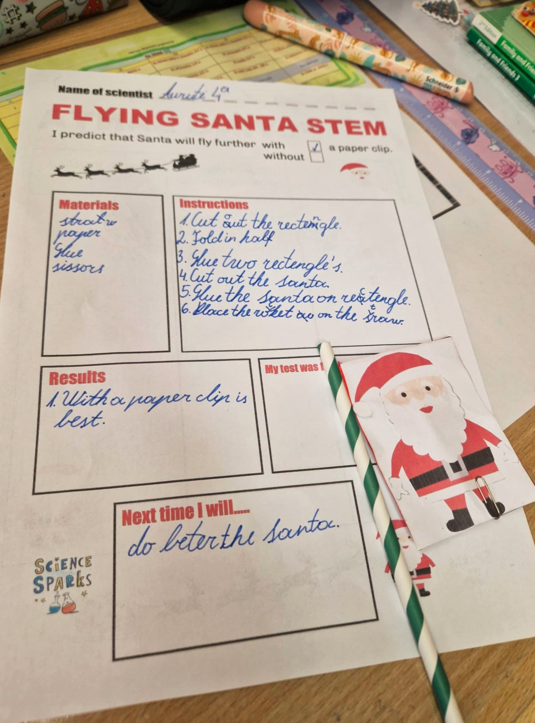 Name of scientist 4a
FLYING SANTA STEM
I predict that Santa will fly further with a paper clip.
without
Materials
straw
paper
Glue
sissors
Instructions
1. Cut out the rectengle.
2. Fold in half
3. Glue two rectengle's.
4. Cut out the santa.
5. Glue the santa on rectengle.
6. Place the on the straw.
Results
1. With a paper clip is
best.
My test was
Next time I will.....
do beter the santa.
SCiENCE
SPARKS
Schneider
Family and Friends 3